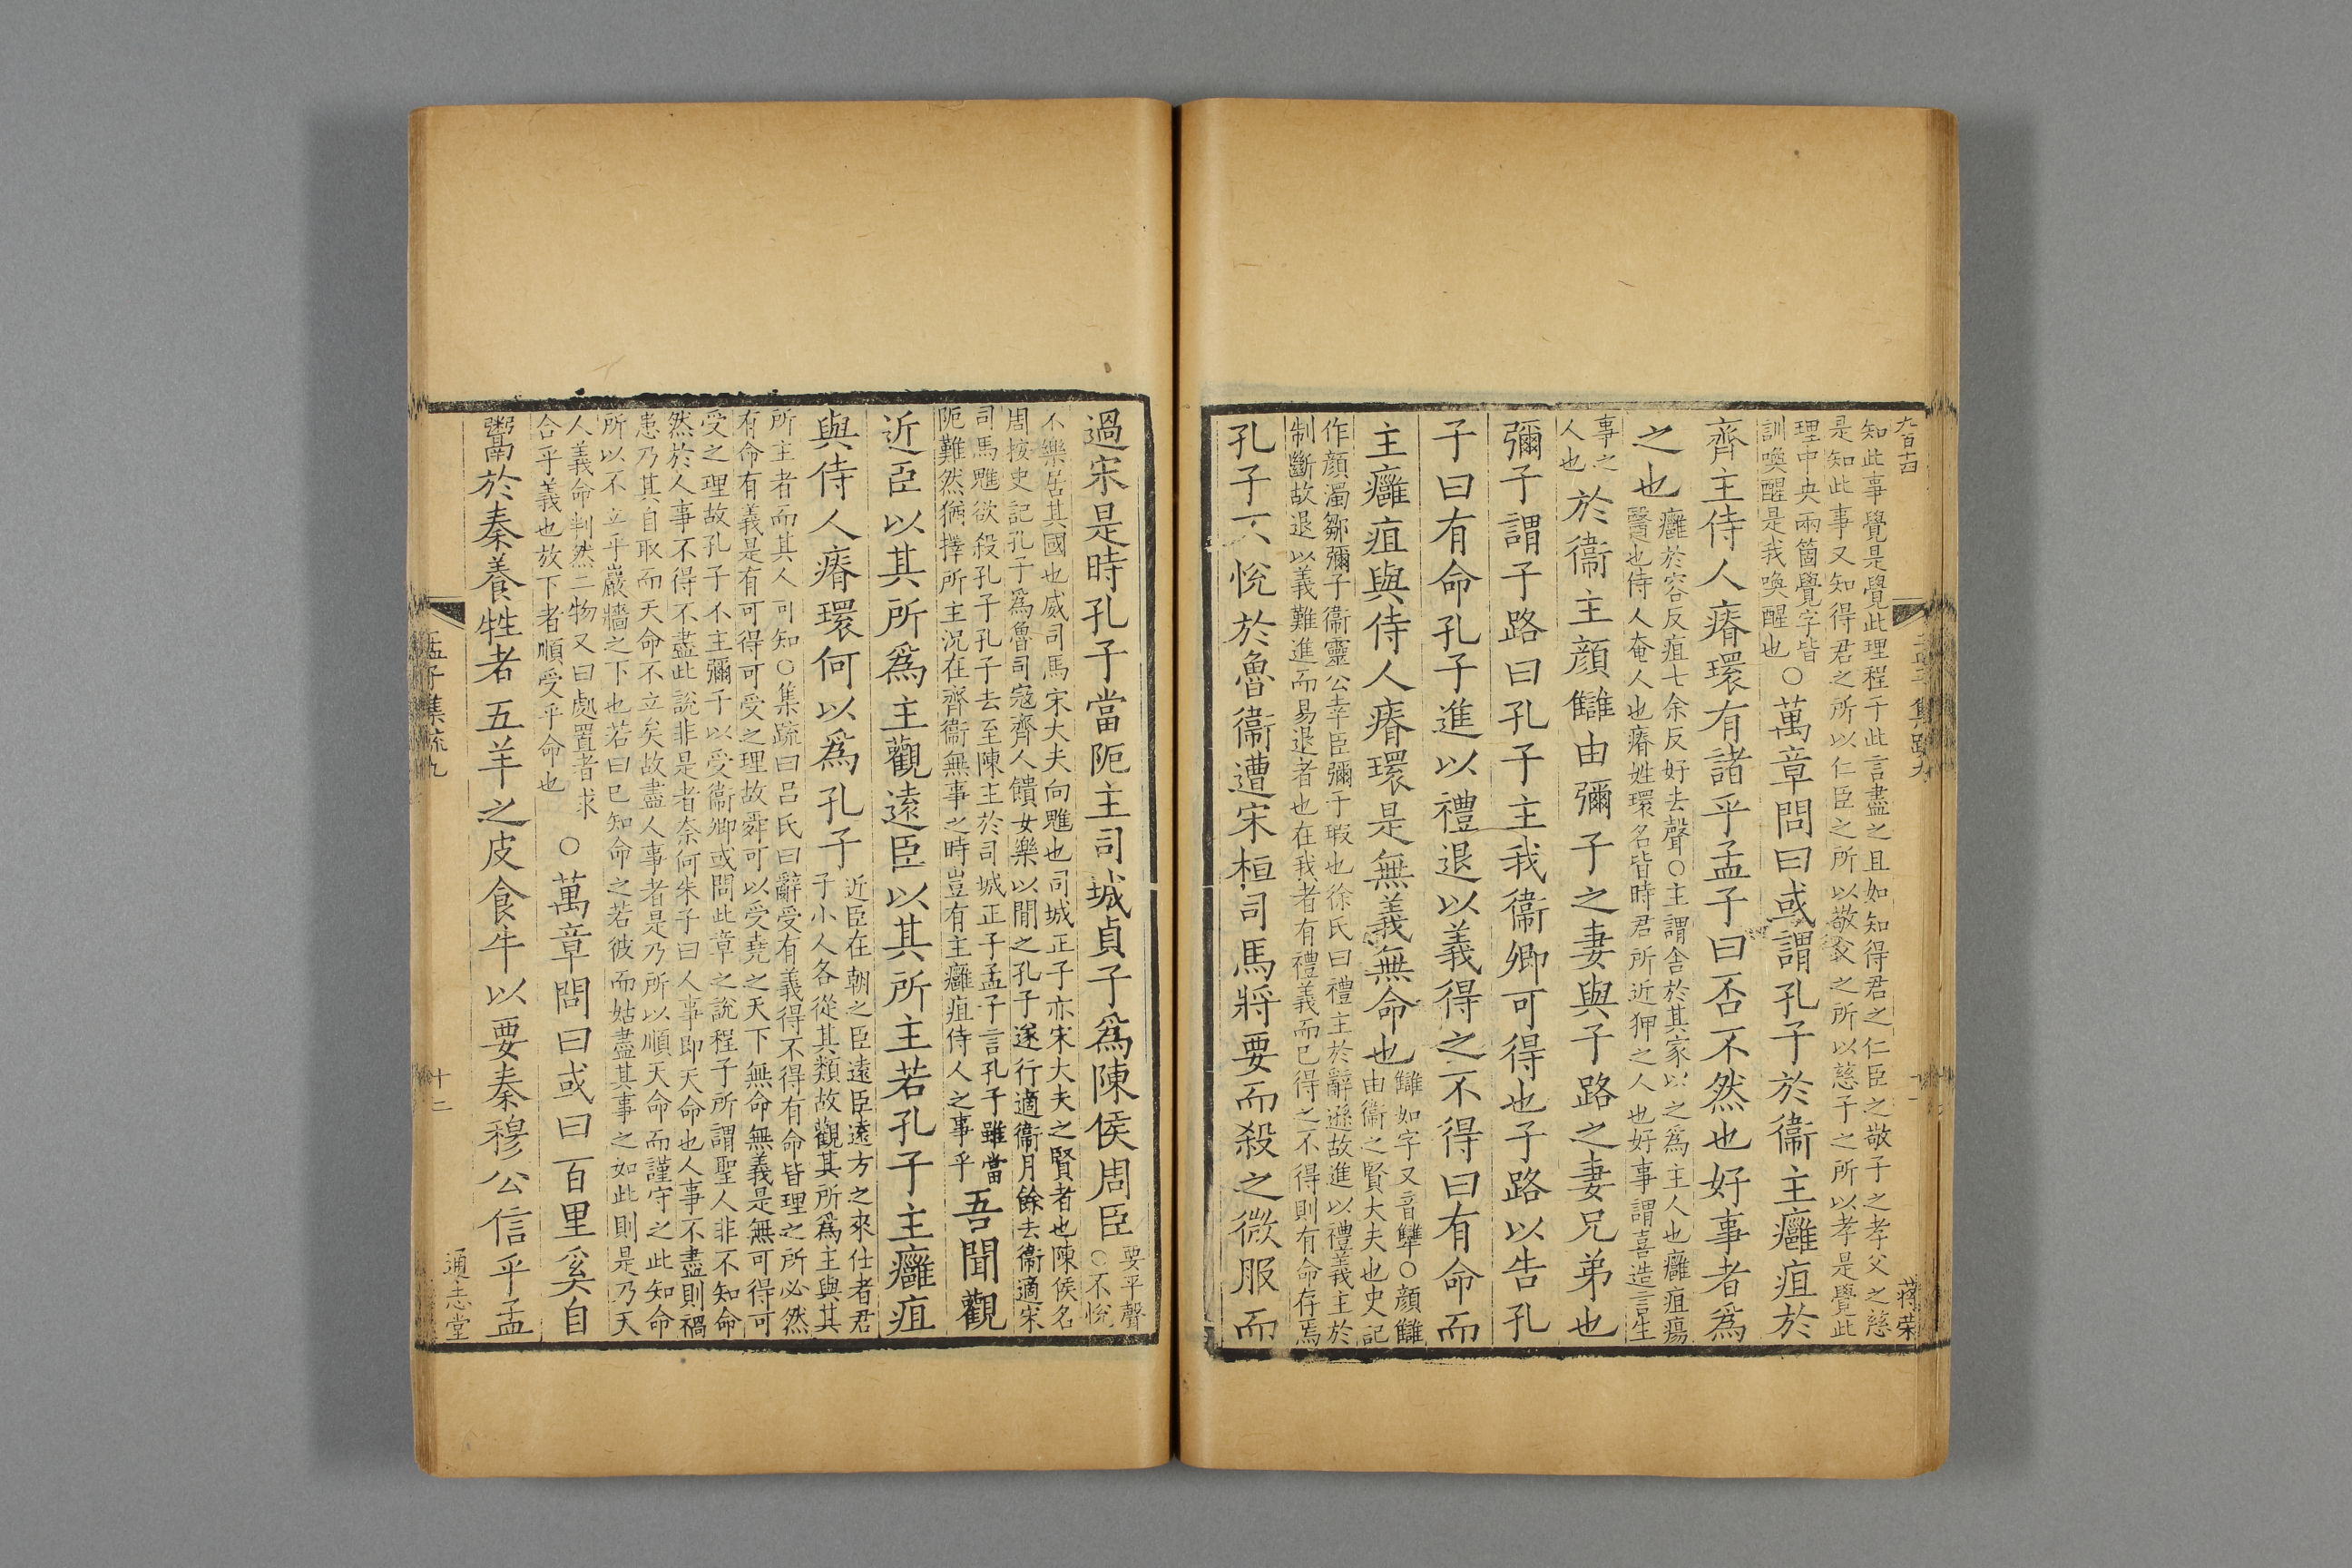 九百十四
知此事覺是覺此理程子此言盡之且如知得君之仁臣之敬子之孝父之慈
是知此事又知得君之所以仁臣之所以敬父之所以慈子之所以孝是覺此
理中央兩箇覺字皆
訓喚醒是我喚醒也
○萬章問曰或謂孔子於衞主癰疽於
齊主侍人瘠環有諸乎孟子曰否不然也好事者爲
之也
癰於容反疽七余反好去聲○主謂舍於其家以之爲主人也癰疽瘍
醫也侍人奄人也瘠姓環名皆時君所近狎之人也好事謂喜造言生
事之
人也
於衞主顔讎由彌子之妻與子路之妻兄弟也
彌子謂子路曰孔子主我衞卿可得也子路以告孔
子曰有命孔子進以禮退以義得之不得曰有命而
主癰疽與侍人瘠環是無義無命也
讎如字又音犨○顔讎
由衞之賢大夫也史記
作顔濁鄒彌子衞靈公幸臣彌子瑕也徐氏曰禮主於辭遜故進以禮義主於
制斷故退以義難進而易退者也在我者有禮義而已得之不得則有命存焉
孔子不悅於魯衞遭宋桓司馬將要而殺之微服而
蔣荣
過宋是時孔子當阨主司城貞子爲陳侯周臣
要平聲
○不悅
不樂居其國也威司馬宋大夫向魋也司城正子亦宋大夫之賢者也陳侯名
周按史記孔子爲魯司寇齊人饋女樂以閒之孔子遂行適衞月餘去衞適宋
司馬魋欲殺孔子孔子去至陳主於司城正子孟子言孔子雖當
阨難然猶擇所主況在齊衞無事之時豈有主癰疽侍人之事乎
吾聞觀
近臣以其所爲主觀遠臣以其所主若孔子主癰疽
與侍人瘠環何以爲孔子
近臣在朝之臣遠臣遠方之來仕者君
子小人各從其類故觀其所爲主與其
所主者而其人可知○集疏曰呂氏曰辭受有義得不得有命皆理之所必然
有命有義是有可得可受之理故舜可以受堯之天下無命無義是無可得可
受之理故孔子不主彌子以受衞卿或問此章之說程子所謂聖人非不知命
然於人事不得不盡此說非是者奈何朱子曰人事即天命也人事不盡則禍
患乃其自取而天命不立矣故盡人事者是乃所以順天命而謹守之此知命
所以不立乎巖牆之下也若曰已知命之若彼而姑盡其事之如此則是乃天
人義命判然二物又曰處置者求
合乎義也放下者順受乎命也
○萬章問曰或曰百里奚自
鬻於秦養牲者五羊之皮食牛以要秦穆公信乎孟
孟子集疏九
十二
通志堂